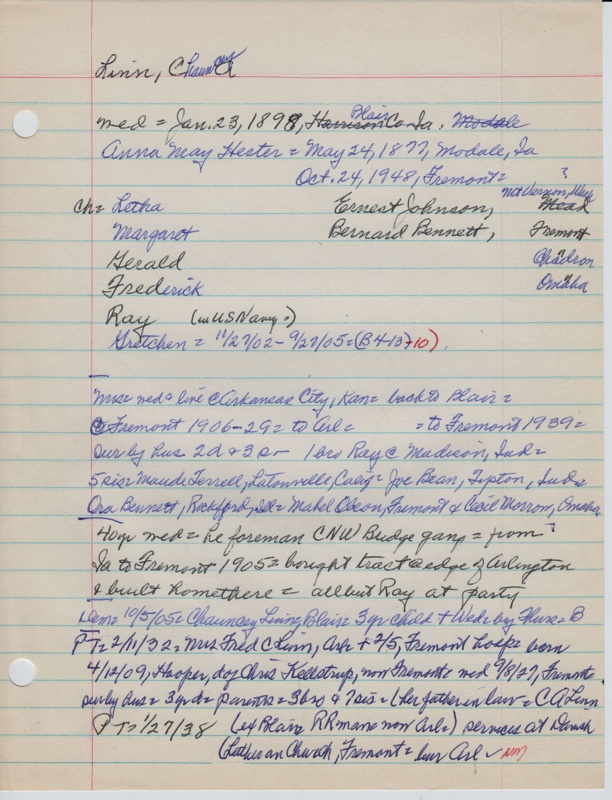 Linn, Chauncey
med = Jan. 23, 1898, Harrison Blair Co Ia. Modale
Anna May Hester = May 24, 1877, Modale, Ia
Oct. 24, 1948, Fremont = ?
not Vernon, Wey
ch = Letha Ernest Johnson, Mead
Margaret Bernard Bennett, Fremont
Gerald Chadron
Frederick Omaha
Ray (in US Navy =)
Gretchen = 11/27/02 - 9/27/05 = (B4-13+10)
Mrs = med & live @ Arkansas City, Kan = back to Blair =
@ Fremont 1906-29 = to Arl = = to Fremont 1939 =
sur by hus 2d & 3 s - 1 bro Ray @ Madison, Ind =
5 sis = Maude Terrell, Latonville, Calif = Joe Bean, Tipton, Ind &
Ora Bennett, Rockford, Ill = Mabel Olson, Fremont & Cecil Morrow, Omaha
40 yr med = he foreman CNW Bridge gang = from ?
Ia to Fremont 1905 = bought tract @ edge of Arlington
& built home there = all but Ray at party
Dem = 10/5/05 = Chauncey Linn, Blair = 3 yr child + Wed = by Thurs = B
PT = 2/11/32 = Mrs Fred C Linn, Ark + 2/5, Fremont hosp = born
4/12/09, Hooper, dof Chris Kellstrup, now Fremont = med 9/8/27, Fremont
sur by hus = 3 yr d = parents = 3 bro & 7 sis = (her father in law = C A Linn
PT = 1/27/38 (ex Blair RR man = now Arl =) services at Danish
Lutheran Church, Fremont = bur Arl